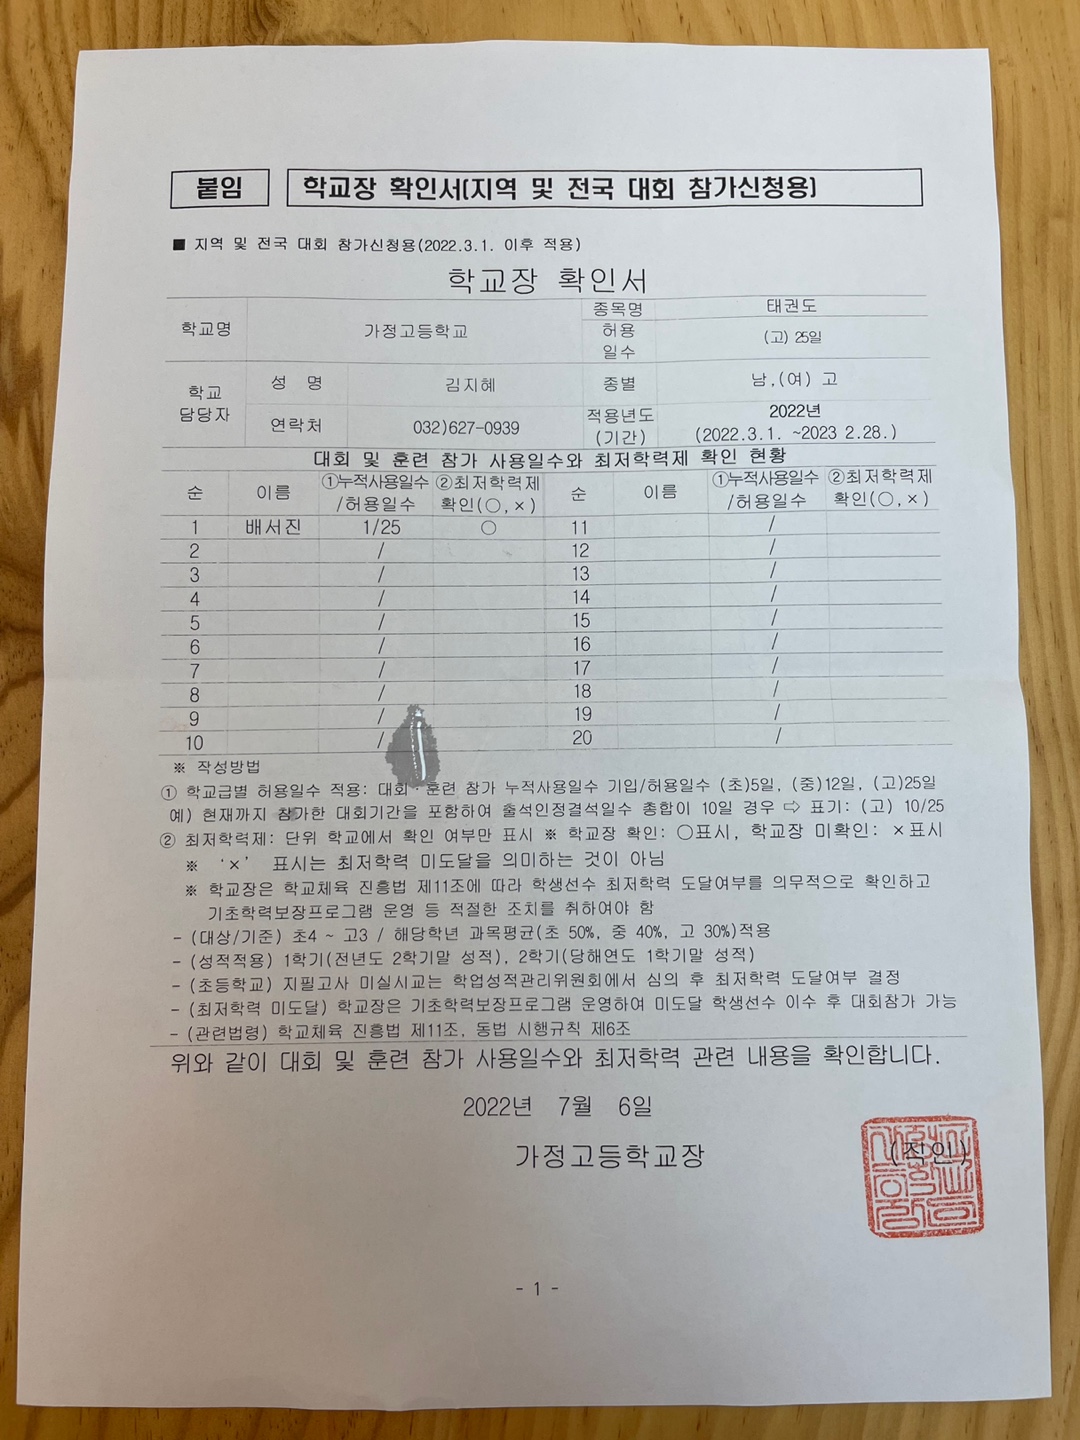 붙임 학교장 확인서(지역 및 전국 대회 참가신청용)
■ 지역 및 전국 대회 참가신청용(2022.3.1. 이후 적용)
학교장 확인서
학교명 가정고등학교 종목명 태권도
허용 일수 (고) 25일
학교 담당자 성 명 김지혜 종별 남,(여) 고
연락처 032)627-0939 적용년도 (기간) 2022년 (2022.3.1. ~2023 2.28.)
대회 및 훈련 참가 사용일수와 최저학력제 확인 현황
순 이름 ①누적사용일수 /허용일수 ②최저학력제 확인(○,×) 순 이름 ①누적사용일수 /허용일수 ②최저학력제 확인(○,×)
1 배서진 1/25 ○ 11 /
2 / 12 /
3 / 13 /
4 / 14 /
5 / 15 /
6 / 16 /
7 / 17 /
8 / 18 /
9 / 19 /
10 / 20 /
※ 작성방법
① 학교급별 허용일수 적용: 대회·훈련 참가 누적사용일수 기입/허용일수 (초)5일, (중)12일, (고)25일
예) 현재까지 참가한 대회기간을 포함하여 출석인정결석일수 총합이 10일 경우 ⇨ 표기: (고) 10/25
② 최저학력제: 단위 학교에서 확인 여부만 표시 ※ 학교장 확인: ○표시, 학교장 미확인: ×표시
※ '×' 표시는 최저학력 미도달을 의미하는 것이 아님
※ 학교장은 학교체육 진흥법 제11조에 따라 학생선수 최저학력 도달여부를 의무적으로 확인하고
기초학력보장프로그램 운영 등 적절한 조치를 취하여야 함
- (대상/기준) 초4 ~ 고3 / 해당학년 과목평균(초 50%, 중 40%, 고 30%)적용
- (성적적용) 1학기(전년도 2학기말 성적), 2학기(당해연도 1학기말 성적)
- (초등학교) 지필고사 미실시교는 학업성적관리위원회에서 심의 후 최저학력 도달여부 결정
- (최저학력 미도달) 학교장은 기초학력보장프로그램 운영하여 미도달 학생선수 이수 후 대회참가 가능
- (관련법령) 학교체육 진흥법 제11조, 동법 시행규칙 제6조
위와 같이 대회 및 훈련 참가 사용일수와 최저학력 관련 내용을 확인합니다.
2022년 7월 6일
가정고등학교장 (직인)
- 1 -